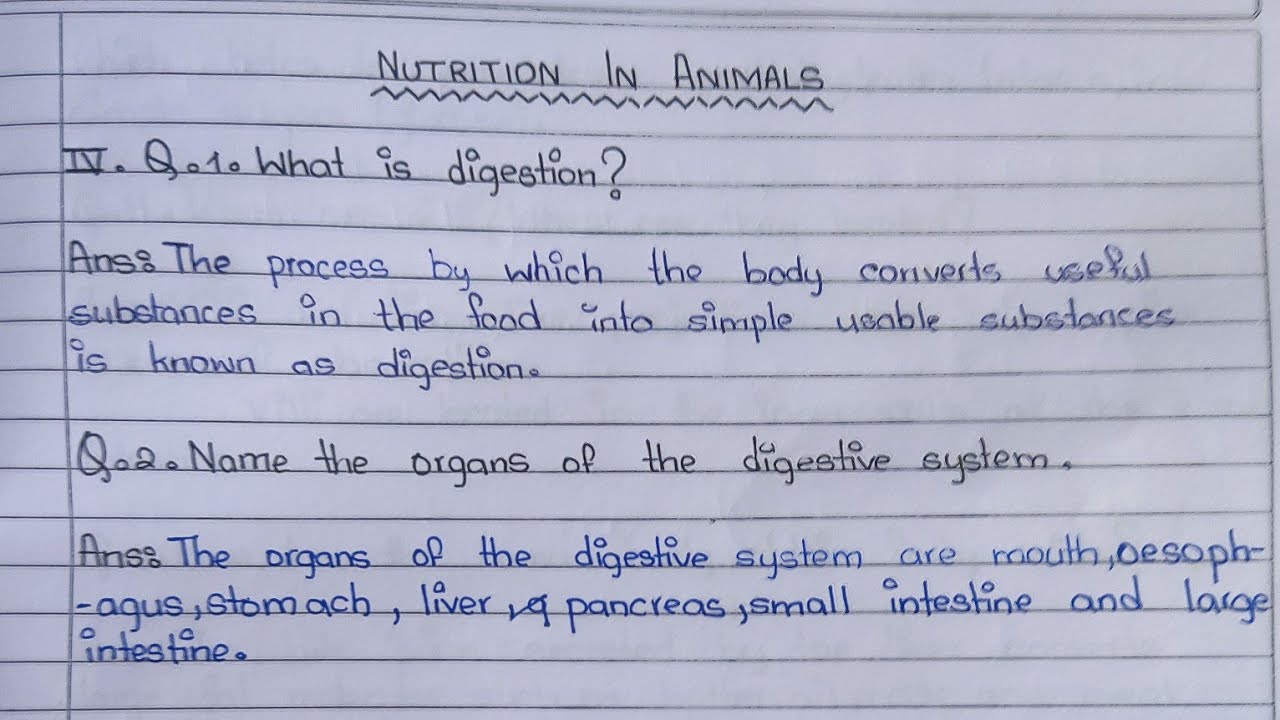 NUTRITION IN ANIMALS
IV. Q.1. What is digestion?
Ans: The process by which the body converts useful
substances in the food into simple usable substances
is known as digestion.
Q.2. Name the organs of the digestive system.
Ans: The organs of the digestive system are mouth, oesoph-
-agus, stomach, liver, pancreas, small intestine and large
intestine.